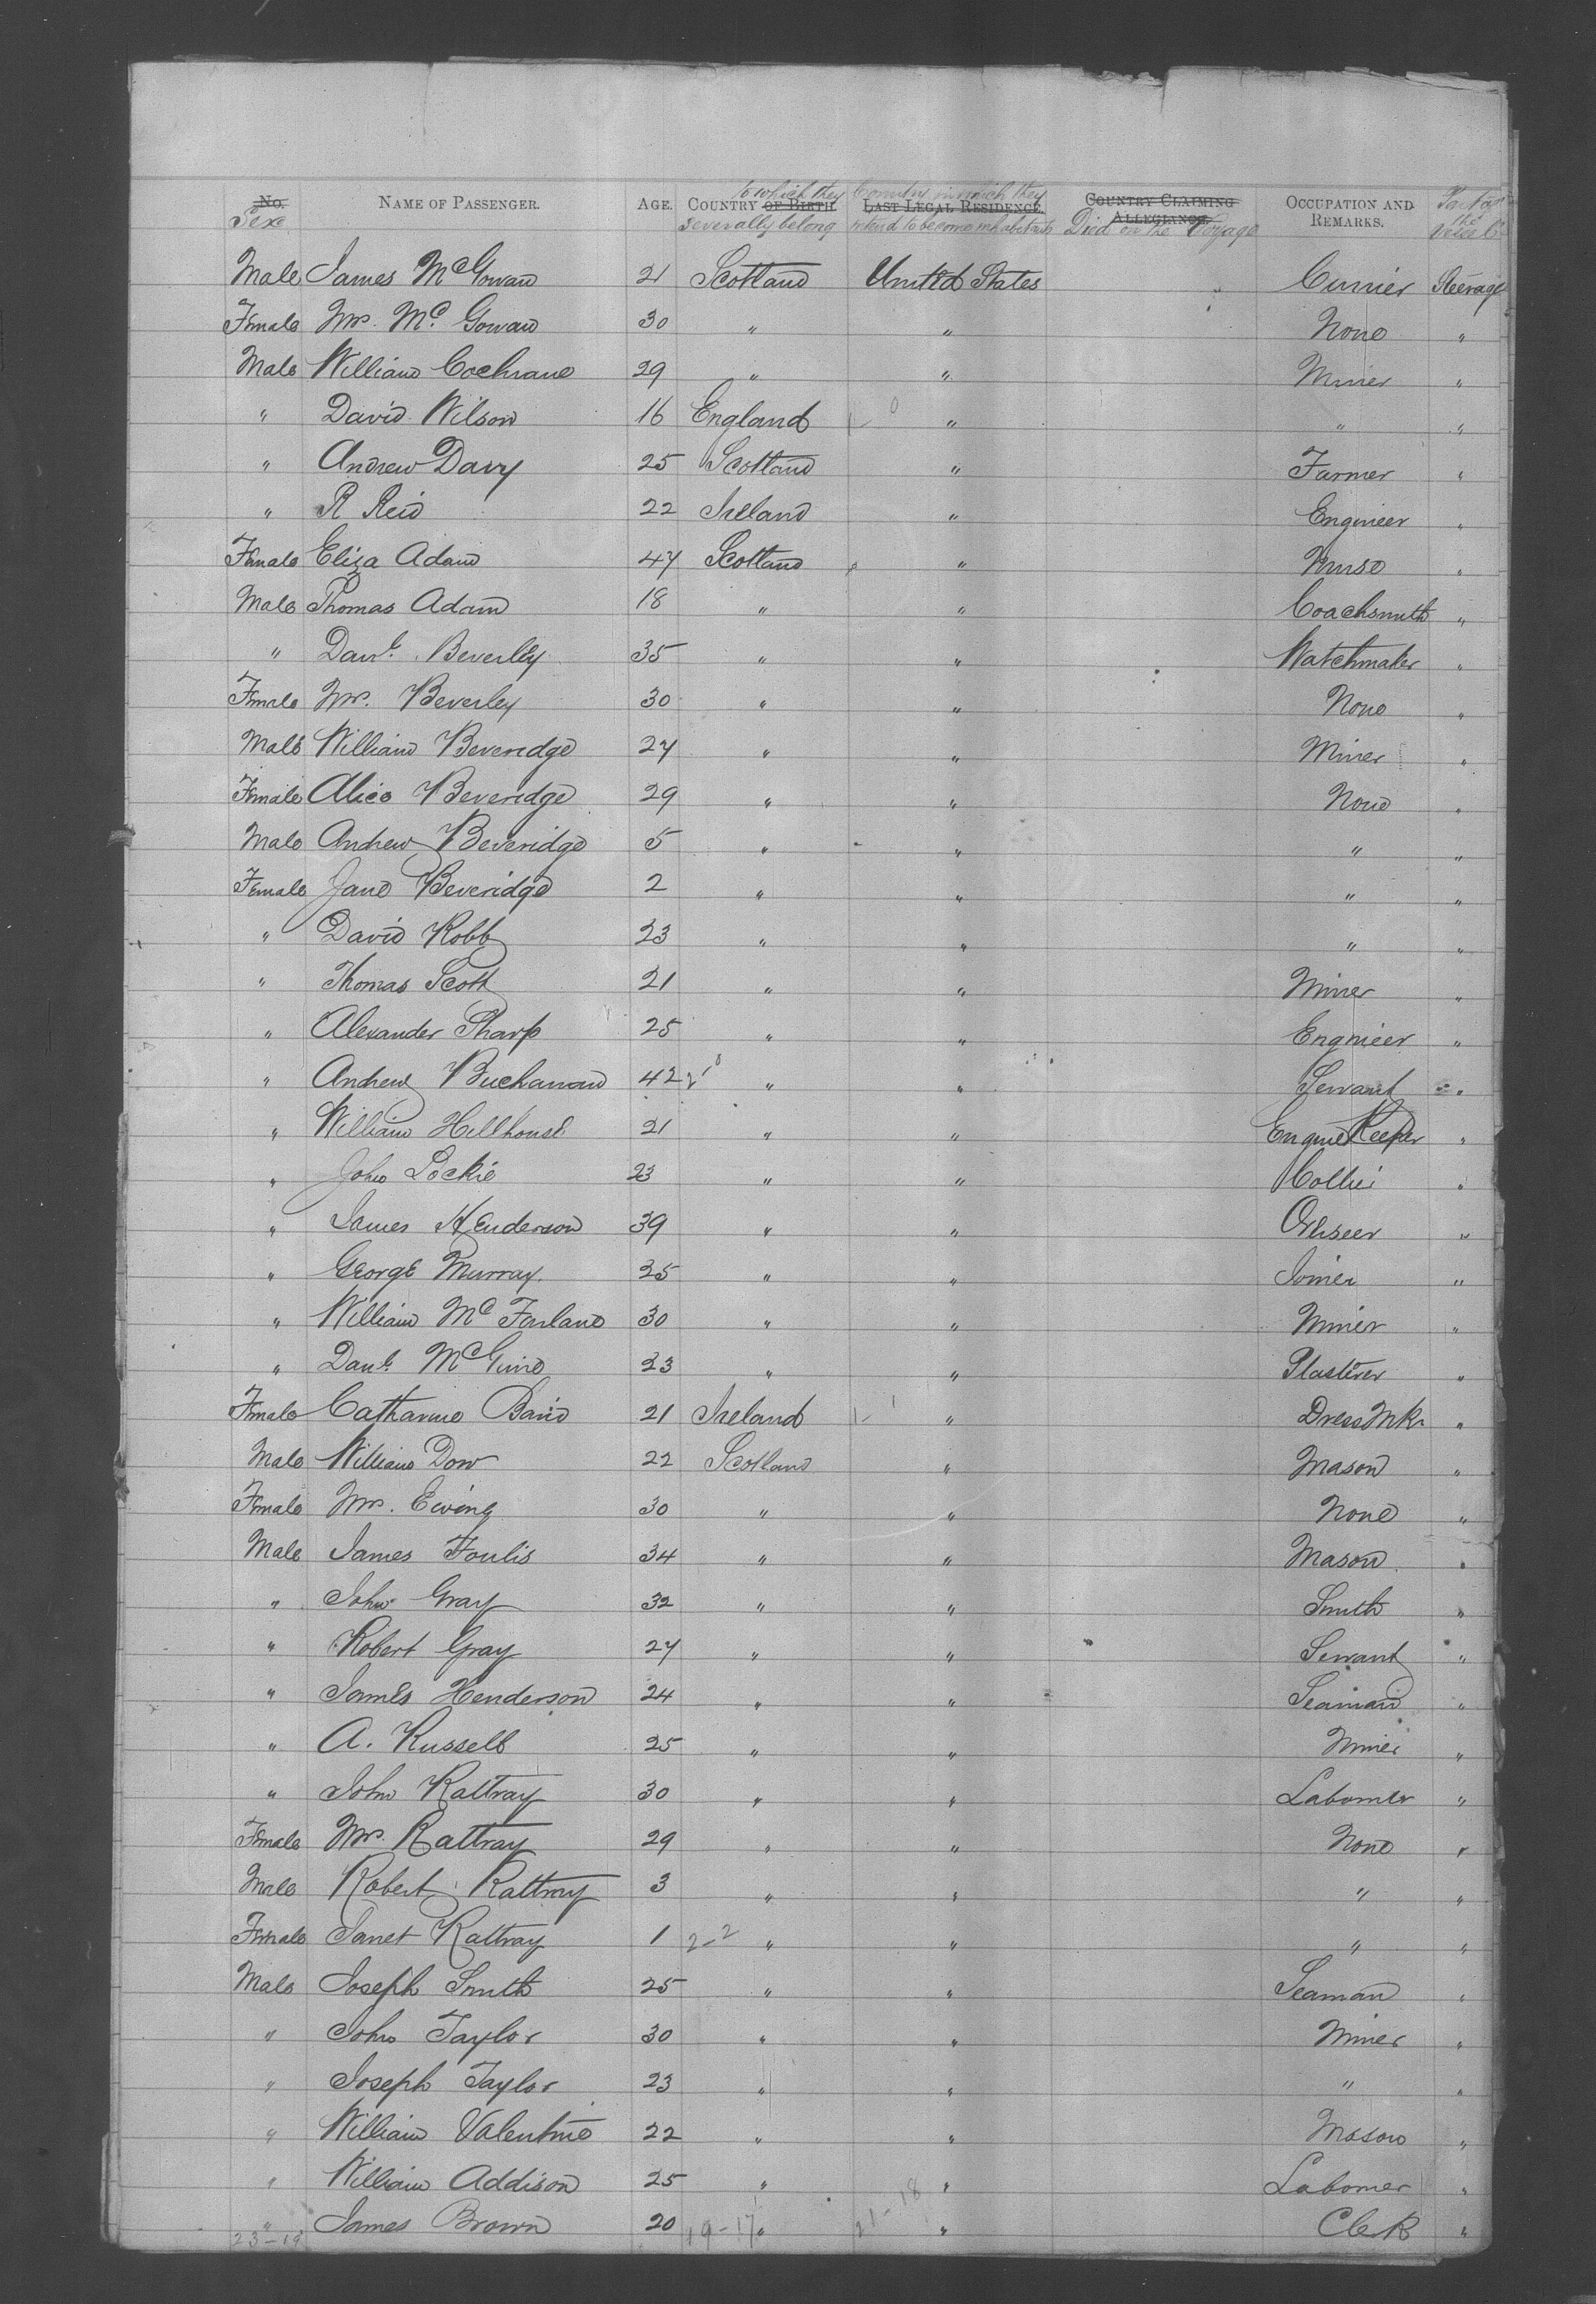 No. NAME OF PASSENGER. AGE. COUNTRY OF BIRTH LAST LEGAL RESIDENCE. COUNTRY CLAIMING ALLEGIANCE. OCCUPATION AND REMARKS. Part of the vessel
Sex to which they severally belong Country in which they intend to become inhabitants Died on the Voyage
Male James McGowan 21 Scotland United States Currier Steerage
Female Mrs. Mc. Gowan 30 " " None "
Male William Cochrane 29 " " Miner "
" David Wilson 16 England 1- 0 " " "
" Andrew Davy 25 Scotland " Farmer "
" R Reid 22 Ireland " Engineer "
Female Eliza Adam 47 Scotland " Nurse "
Male Thomas Adam 18 " " Coachsmith "
" Danl. Beverley 35 " " Watchmaker "
Female Mrs. Beverley 30 " " None "
Male William Beveridge 27 " " Miner "
Female Alice Beveridge 29 " " None "
Male Andrew Beveridge 5 " " " "
Female Jane Beveridge 2 " " " "
" David Robb 23 " " " "
" Thomas Scott 21 " " Miner "
" Alexander Sharp 25 " " Engineer "
" Andrew Buchanan 42 " " Servant "
" William Hillhouse 21 " " Engine Keeper "
" John Lockie 23 " " Collier "
" James Henderson 39 " " Overseer "
" George Murray. 25 " " Joiner "
" William Mc Farlane 30 " " Miner "
" Danl. McGuire 23 " " Plasterer "
Female Catharine Baird 21 Ireland 1- 1 " Dress Mkr "
Male William Dow 22 Scotland " Mason "
Female Mrs. Ewing 30 " " None "
Male James Foulis 34 " " Mason "
" John Gray 32 " " Smith "
" Robert Gray 27 " " Servant "
" James Henderson 24 " " Seaman "
" A. Russell 25 " " Miner "
" John Rattray 30 " " Labourer "
Female Mrs. Rattray 29 " " None "
Male Robert Rattray 3 " " " "
Female Janet Rattray 1 2-2 " " " "
Male Joseph Smith 25 " " Seaman "
" John Taylor 30 " " Miner "
" Joseph Taylor 23 " " " "
" William Valentine 22 " " Mason "
" William Addison 25 " " Labourer "
" James Brown 20 19-17 " 21-18 " Clerk "
23-19